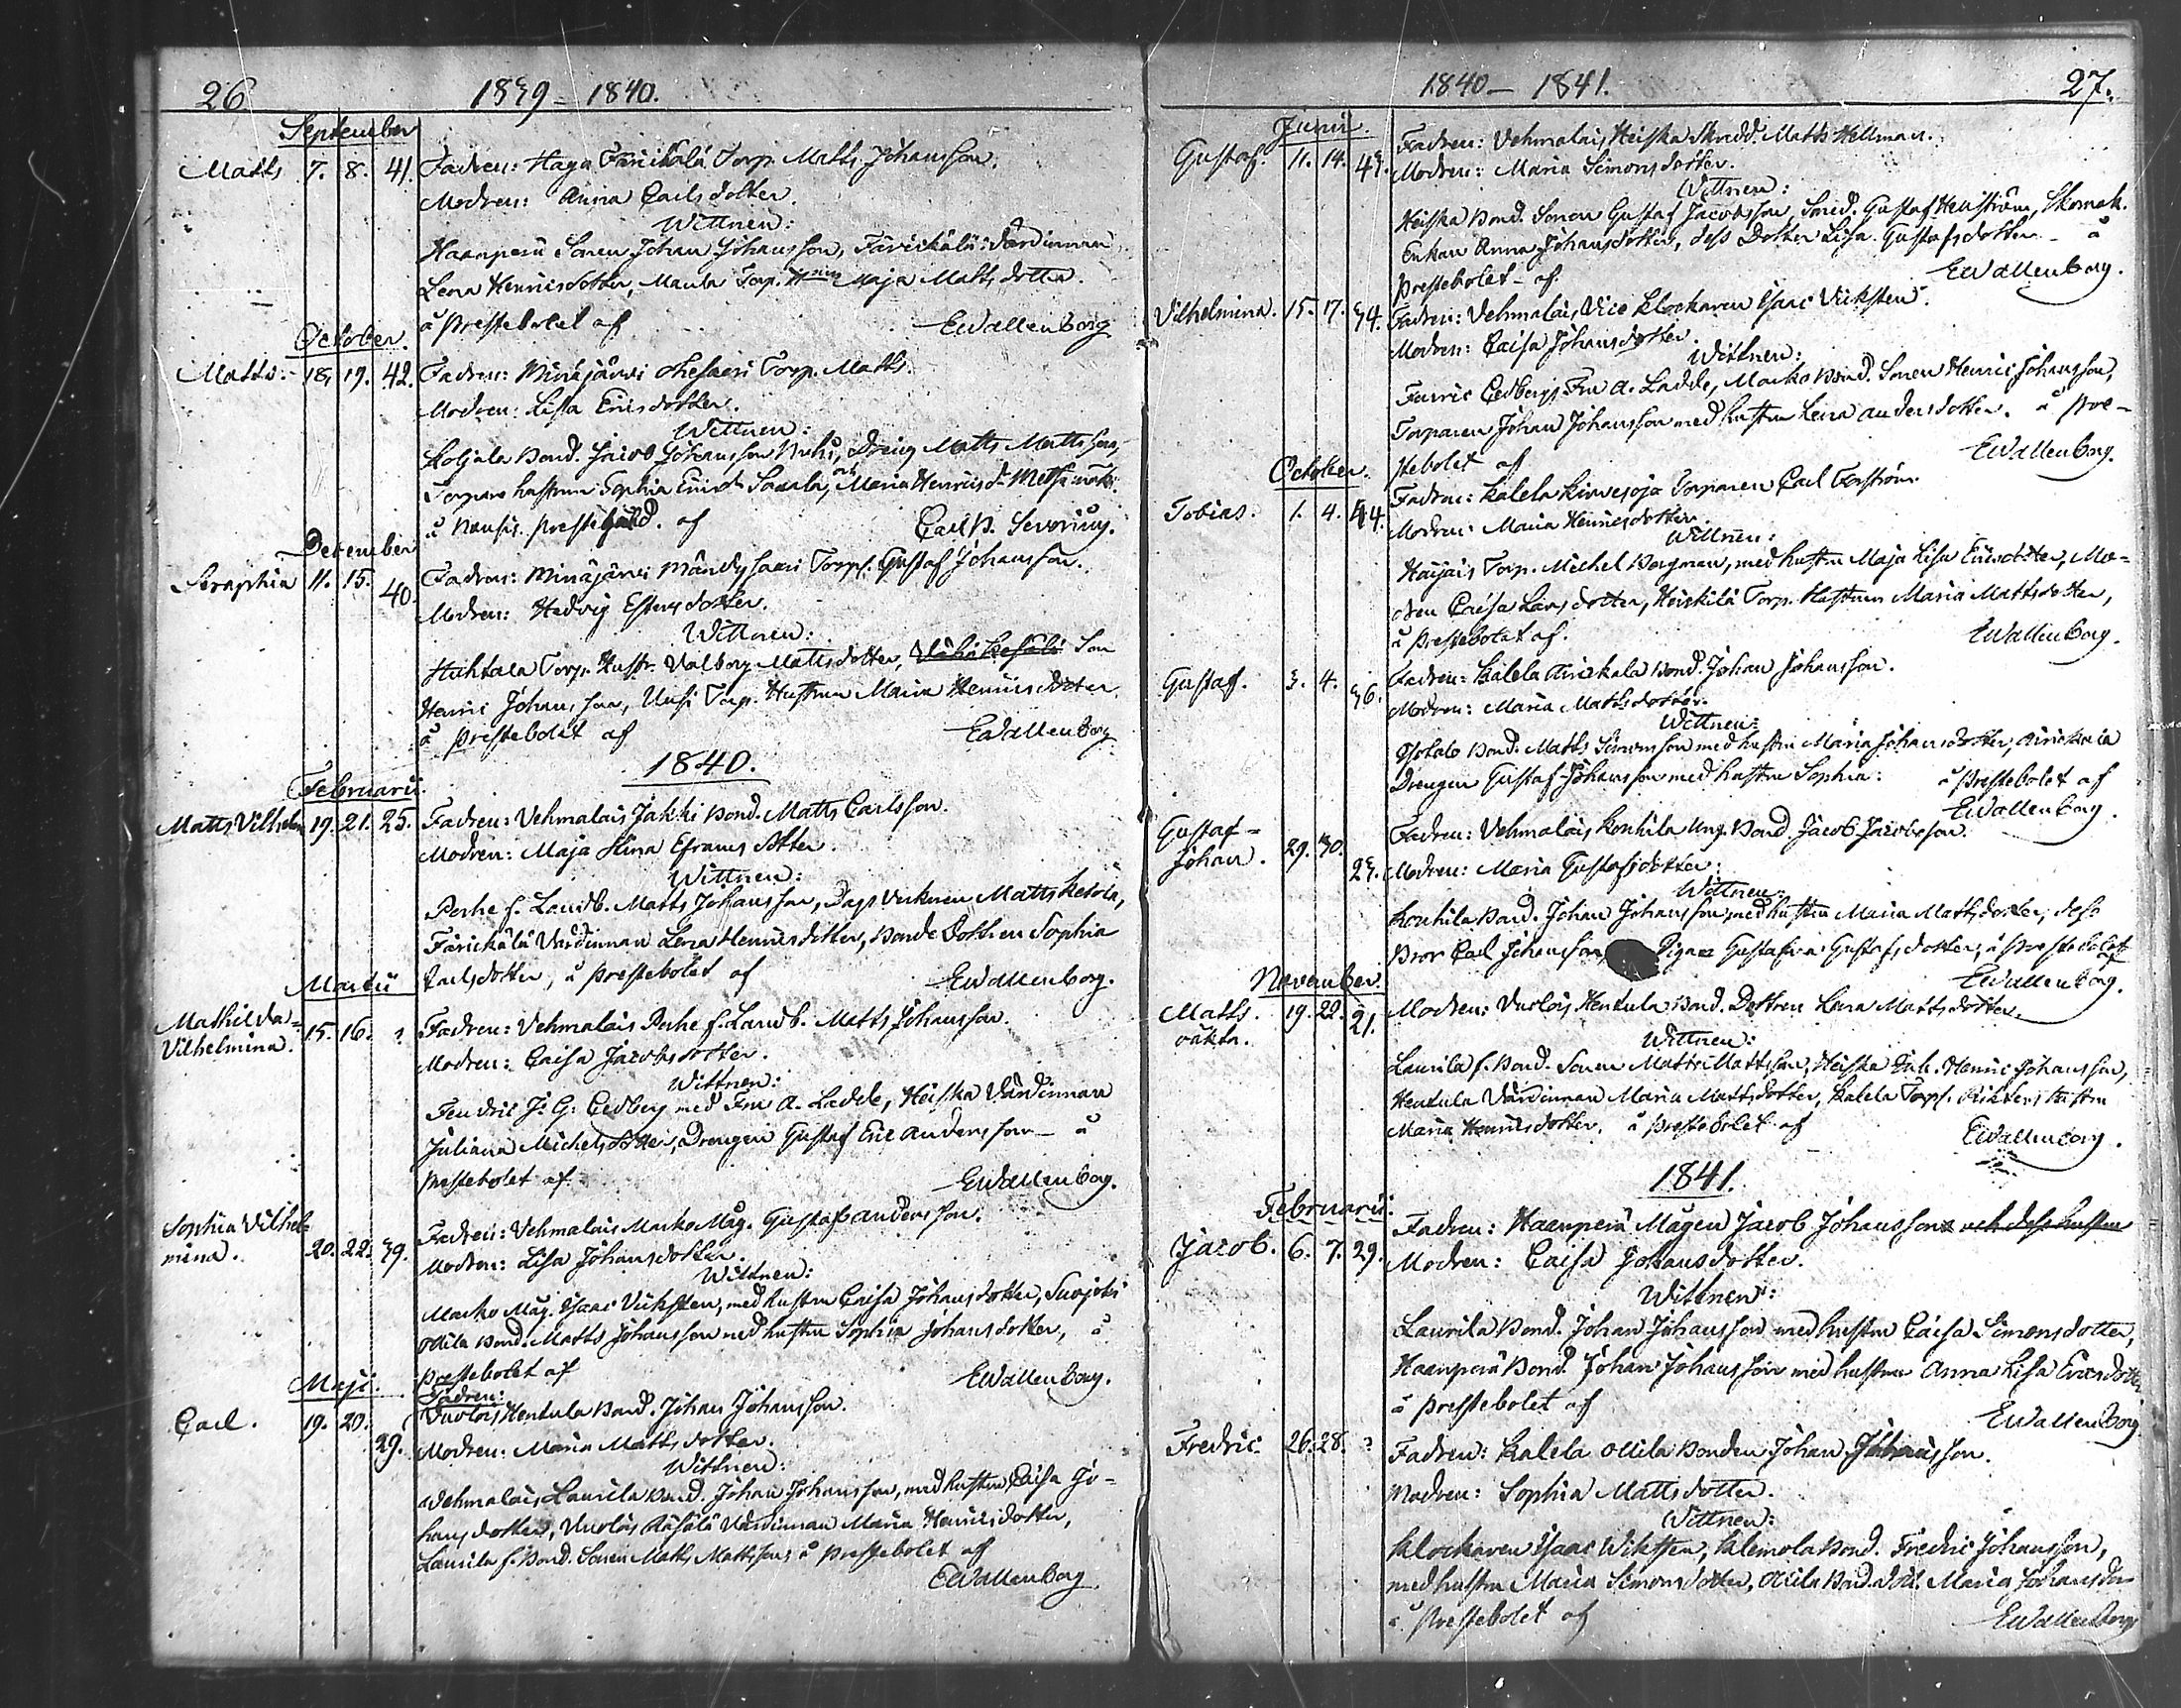 26
1839 - 1840.
September
Matts 7. 8. 41. Fadren: Haga Färikälä Torp. Matts Johansson.
Modren: Anna Carlsdotter.
Wittnen:
Haanperä Sonen Johan Johansson, Färickälä Värdinnan
Lena Henricsdotter, Torp. Maja Mattsdotter.
å Prestebolet af EWallenborg
October.
Matts. 18. 19. 42. Fadren: Minäjärvi Torp. Matts.
Modren: Lisa Ericsdotter.
Wittnen:
Koljala Bond. Jacob Johansson Dreng Matts Mattsson,
Torpare hustrun Sophia Maria Henricsd.
å Prestegård. af Carl Severing.
December
Seraphia 11. 15. 40. Fadren: Minäjärvi Torp. Gustaf Johansson.
Modren: Hedvig
Wittnen:
Huhtala Torp. Hustr. Valborg Mattsdotter, Son
Henric Johansson, Uusi Torp. Hustrun Maria Henricsdotter
å Prestebolet af EWallenborg
1840.
Februarii.
Matts Vilhelm 19. 21. 25. Fadren: Vehmalais Jakki Bond. Matts Carlsson.
Modren: Maja Stina Eframsdotter.
Wittnen:
Perhe f. Landb. Matts Johansson, Dags Verkaren Matts Ketola,
Färickälä Värdinnan Lena Henricsdotter, Bonde Dottren Sophia
Carlsdotter, å Prestebolet af EWallenborg.
Martii
Mathilda-
Vilhelmina. 15. 16. ? Fadren: Vehmalais Perhe f. Landb. Matts Johansson.
Modren: Caisa Jacobsdotter.
Wittnen:
Fendric J: G: Cedberg med Fru A. Ladde, Heiska Värdinnan
Juliana Michelsdotter, Drengen Gustaf Eric Andersson - å
Prestebolet af EWallenborg.
Sophia Vilhel-
mina. 20. 22. 39. Fadren: Vehmalais Marko Måg. Gustaf Andersson.
Modren: Lisa Johansdotter.
Wittnen:
Marko Måg. Isaac Vicksten, med hustru Caisa Johansdotter, Suojoki
Ollila Bond. Matts Johansson med hustru Sophia Johansdotter, å
Prestebolet af EWallenborg.
Maji.
Fadren:
Carl. 19. 20. 29. Vuolois Hentula Bond. Johan Johansson.
Modren: Maria Mattsdotter.
Wittnen:
Vehmalais Laurila Bond. Johan Johansson, med hustru Caisa Jo-
hansdotter, Vuolois Värdinnan Maria Henricsdotter,
Laurila f. Bond. Sonen Matts Mattsson; å Prestebolet af
EWallenborg
1840 - 1841.
27.
Junii.
Gustaf. 11. 14. 43. Fadren: Vehmalais Heiska Skradd. Matts Hellman.
Modren: Maria Simonsdotter.
Wittnen:
Heiska Bond. Sonen Gustaf Jacobsson, Smed. Gustaf Hellström, Skomak.
Enkan Anna Johansdotter, dess Dotter Lisa Gustafsdotter - å
Prestebolet - af EWallenborg.
Vilhelmina. 15. 17. 34. Fadren: Vehmalais Vice Klockaren Isaac Vicksten.
Modren: Caisa Johansdotter.
Wittnen:
Cedbergs Fru A. Ladde, Marko Bond. Sonen Henric Johansson,
Torparen Johan Johansson med hustru Lena Andersdotter. å Pre-
stebolet af EWallenborg.
October.
Tobias. 1. 4. 44. Fadren: Kalela Torparen Carl Forström.
Modren: Maria Henricsdotter.
Wittnen:
Haijais Torp. Michel Bergman, med hustru Maja Lisa Ericsdotter, Mo-
dren Caisa Larsdotter, Heickilä Torp. Hustrun Maria Mattsdotter,
å Prestebolet af. EWallenborg.
Gustaf. 3. 4. 36. Fadren: Kalela Airickala Bond. Johan Johansson.
Modren: Maria Mattsdotter.
Wittnen:
Bond. Matts Simonsson med hustru Maria Johansdotter, Airickala
Drengen Gustaf Johansson med hustru Sophia: å Prestebolet af
EWallenborg.
Gustaf-
Johan. 29. 30. 23. Fadren: Vehmalais Kouhila Ung. Bond. Jacob Jacobsson.
Modren: Maria Gustafsdotter.
Wittnen:
Kouhila Bond. Johan Johansson, med hustru Maria Mattsdotter, dess
Bror Carl Johansson, Pigan Gustafva Gustafsdotter; å Prestebolet
EWallenborg.
November.
Matts. 19. 22. 21. Modren: Vuolois Hentula Bond. Dottren Lena Mattsdotter.
oäkta.
Wittnen:
Laurila f. Bond. Sonen Matts Mattsson, Heiska Henric Johansson,
Hentula Värdinnan Maria Mattsdotter, Kalela Torp. hustru
Maria Henricsdotter. å Prestebolet af EWallenborg.
1841.
Februarii.
Jacob. 6. 7. 29. Fadren: Haanperä Mågen Jacob Johansson och dess hustru
Modren: Caisa Johansdotter.
Wittnen:
Laurila Bond. Johan Johansson med hustru Caisa Simonsdotter,
Haanperä Bond. Johan Johansson med hustru Anna Lisa Ericsdotter
å Prestebolet af EWallenborg
Fredric 26. 28. ? Fadren: Kalela Ollila Bonden Johan Johansson.
Modren: Sophia Mattsdotter.
Wittnen:
Klockaren Isaac Wiksten, Klemola Bond. Fredric Johansson,
med hustru Maria Simonsdotter, Ollila Bond. Dott. Maria Johansdor
å Prestebolet af EWallenborg